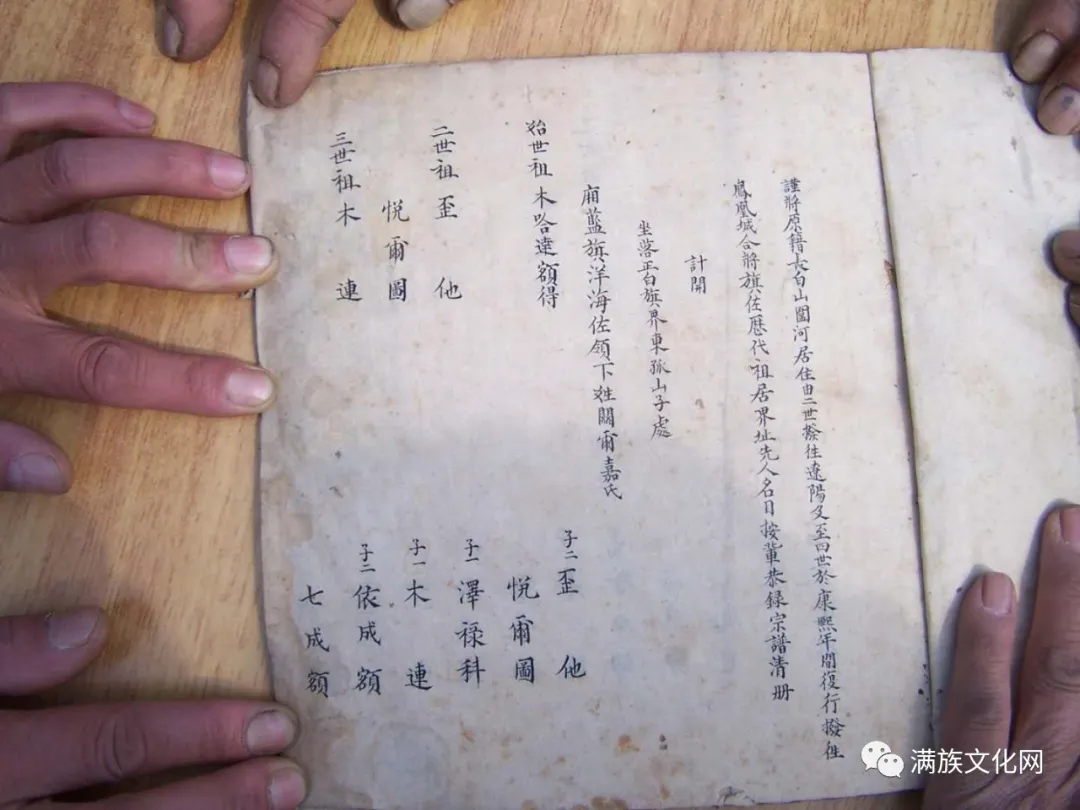 謹將原籍長白山圖河居住由二世撥往遼陽又至四世於康熙年間復行撥往
鳳凰城合將旗佐歷代祖居界址先人名目按輩恭錄宗譜清册
計開
坐落正白旗界東孤山子處
廂藍旗洋海佐領下姓關爾嘉氏
始世祖木哈達額得
子二歪他
悅爾圖
二世祖歪他
子一澤祿科
悅爾圖
子一木連
三世祖木連
子二依成額
七成額
满族文化网